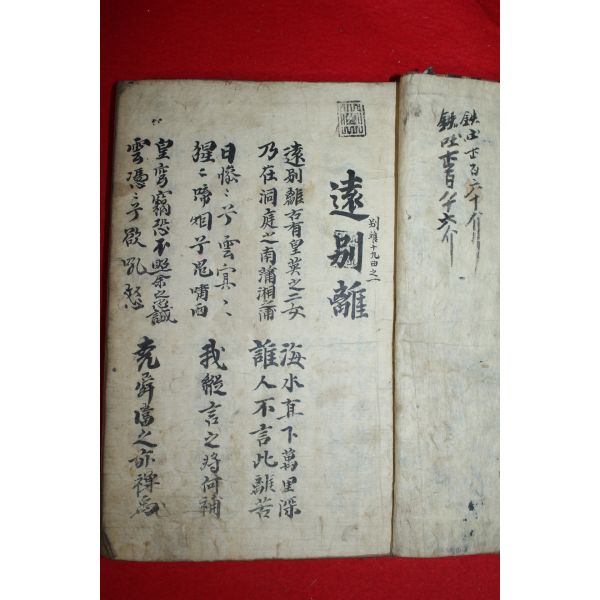 遠别離
别離十九曲之一
遠别離古有皇英之二女
乃在洞庭之南瀟湘之浦
海水直下萬里深
誰人不言此離苦
日慘〻兮雲冥〻
猩〻啼烟兮鬼嘯雨
我縱言之將何補
皇穹竊恐不照余之忠誠
雲憑〻兮欲吼怒
堯舜當之亦禪禹